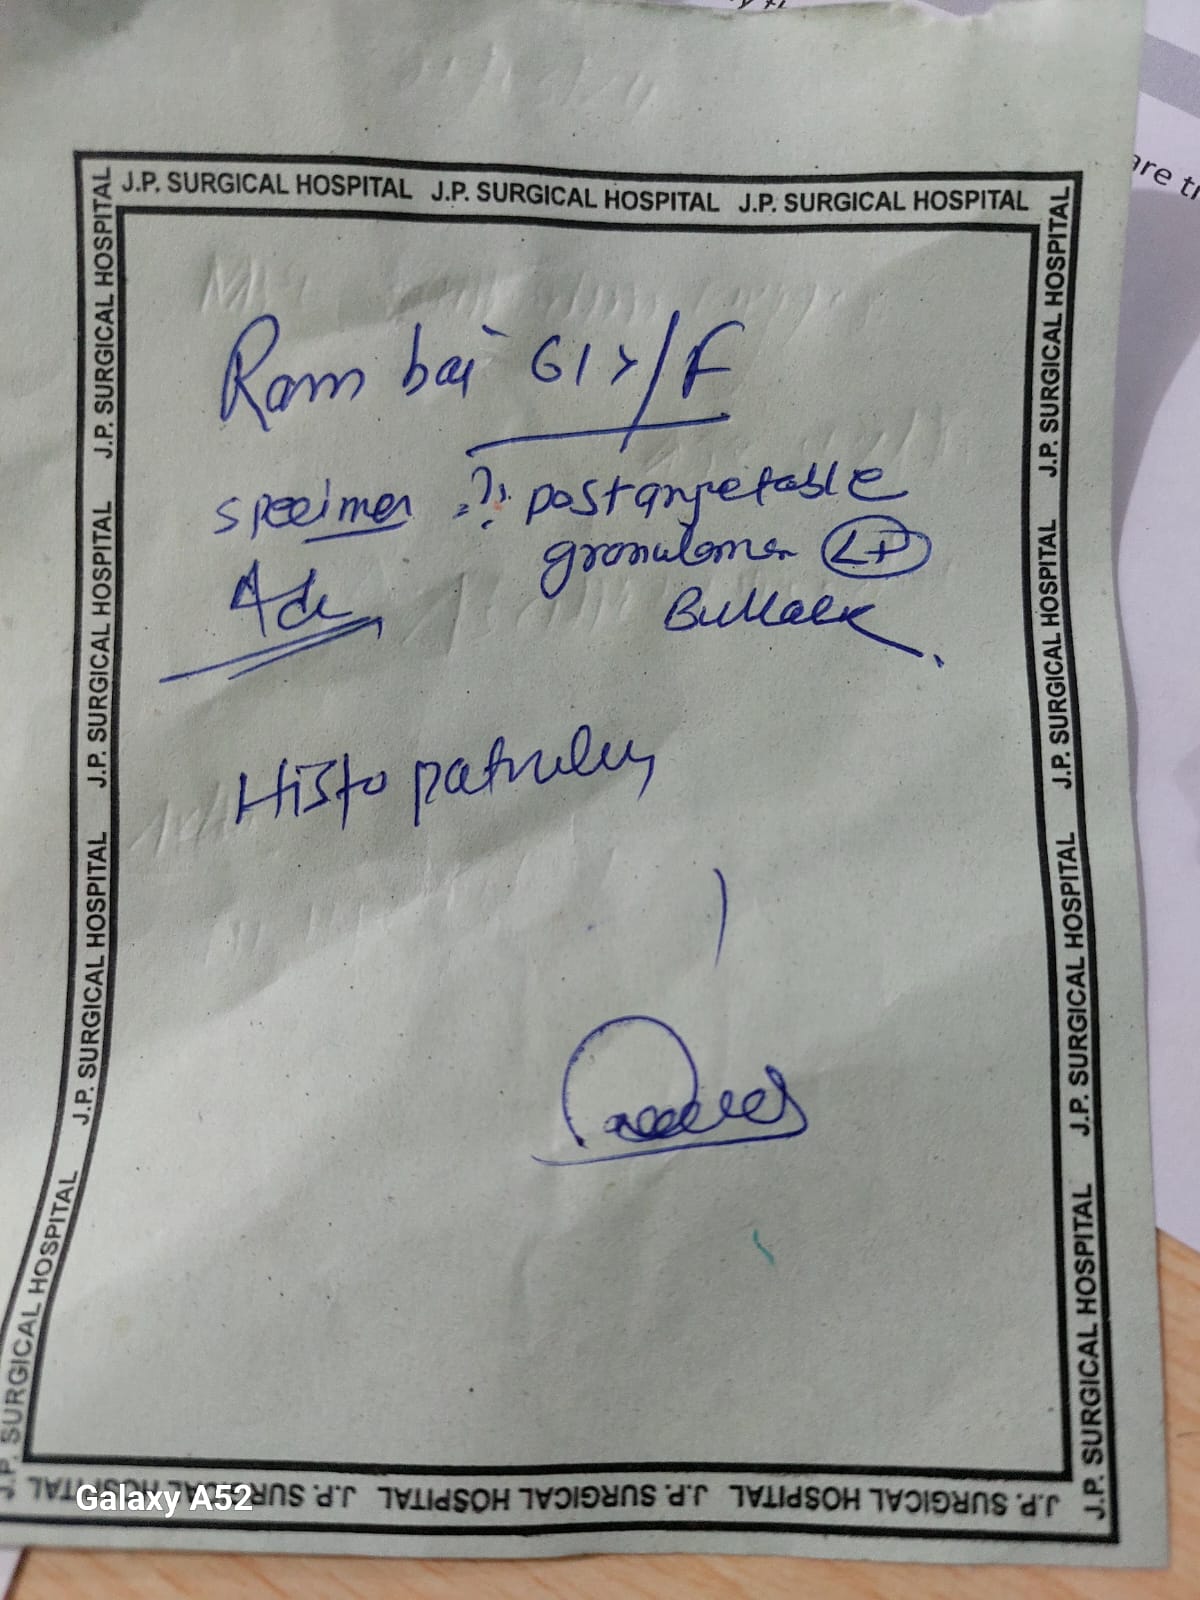 J.P. SURGICAL HOSPITAL J.P. SURGICAL HOSPITAL J.P. SURGICAL HOSPITAL
Ram bai 61y/F
specimen ?? postanjetable
granuloman Lt
Buttock
Adv
Histo pathology
J.P. SURGICAL HOSPITAL J.P. SURGICAL HOSPITAL J.P. SURGICAL HOSPITAL J.P. SURGICAL HOSPITAL J.P. SURGICAL HOSPITAL
J.P. SURGICAL HOSPITAL J.P. SURGICAL HOSPITAL J.P. SURGICAL HOSPITAL J.P. SURGICAL HOSPITAL J.P. SURGICAL HOSPITAL
J.P. SURGICAL HOSPITAL J.P. SURGICAL HOSPITAL J.P. SURGICAL HOSPITAL
Galaxy A52
are